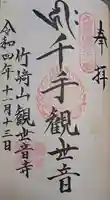 奉拝
千手観世音
竹崎山観世音寺
令和四年十一月十三日